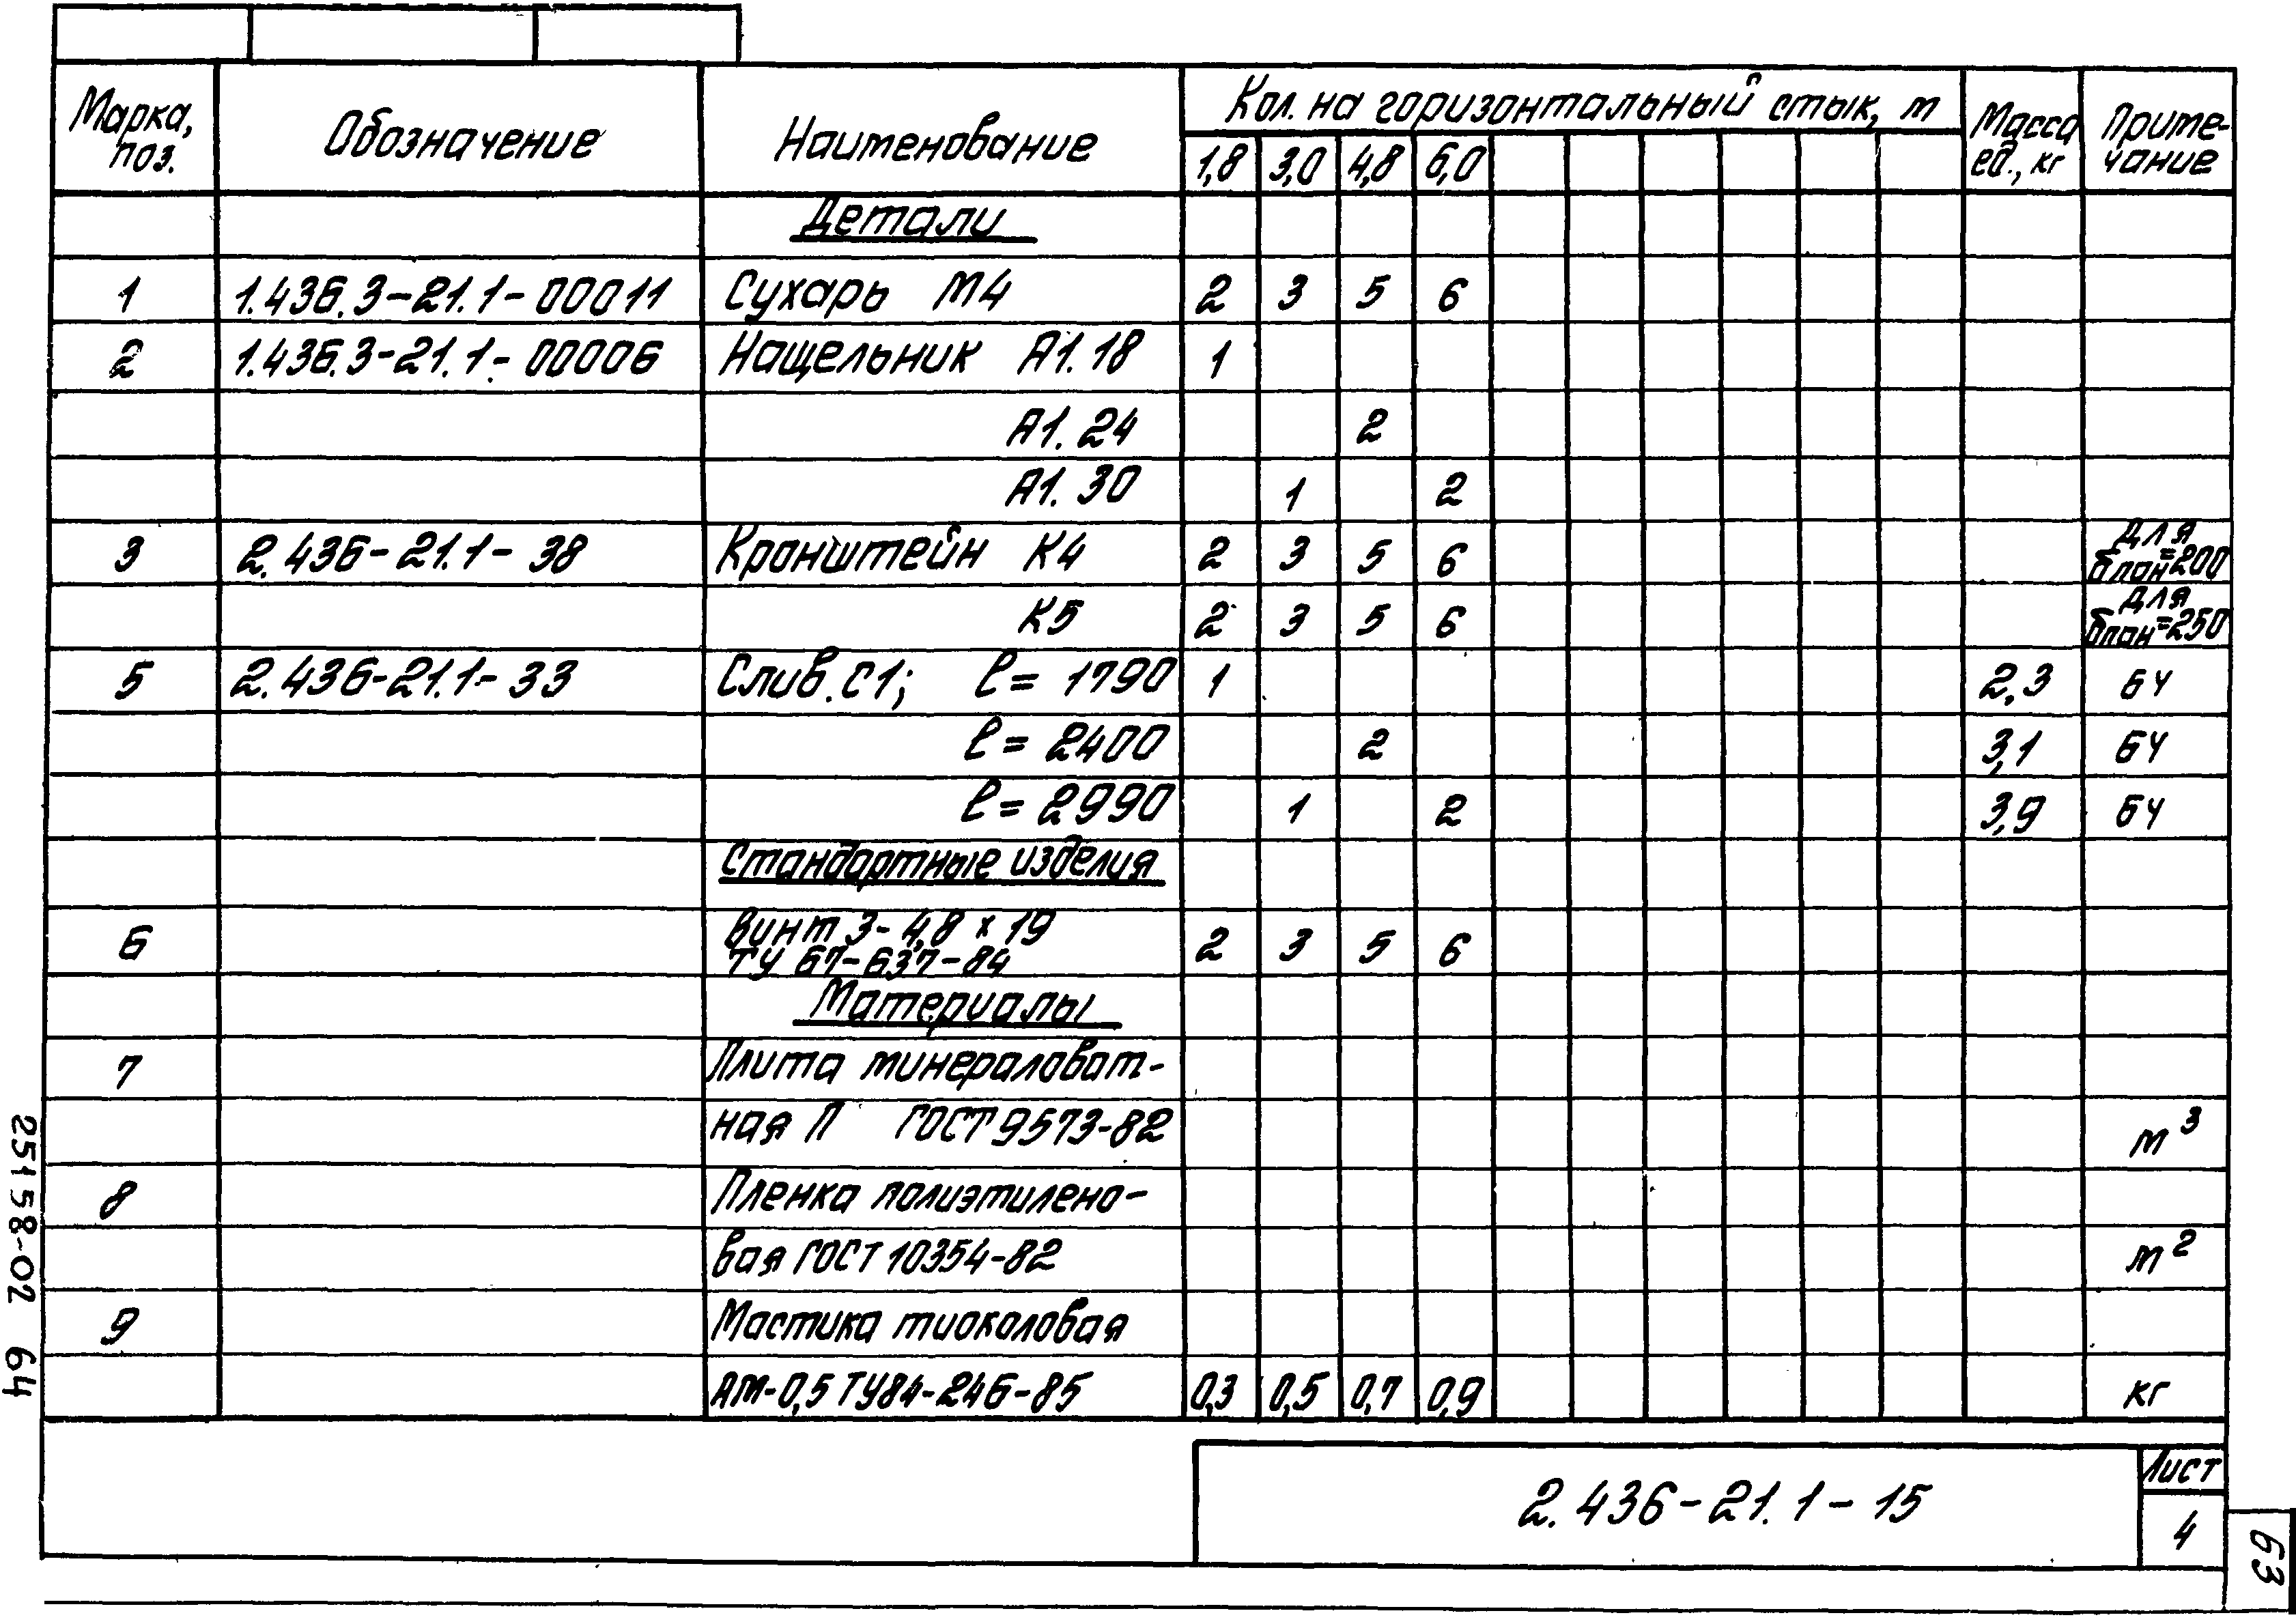 Марка, поз. Обозначение Наименование Кол. на горизонтальный стык, м Масса ед., кг Приме-чание
1,8 3,0 4,8 6,0
Детали
1 1.436.3-21.1-00011 Сухарь М4 2 3 5 6
2 1.436.3-21.1-00006 Нащельник А1.18 1
А1.24 2
А1.30 1 2
3 2.436-21.1-38 Кронштейн К4 2 3 5 6 для bпан=200
К5 2 3 5 6 для bпан=250
5 2.436-21.1-33 Слив.С1; ℓ=1790 1 2,3 БЧ
ℓ=2400 2 3,1 БЧ
ℓ=2990 1 2 3,9 БЧ
Стандартные изделия
6 Винт 3-4,8 х 19 2 3 5 6
ТУ 67-637-84
Материалы
7 Плита минераловат-
ная П ГОСТ 9573-82 м³
8 Пленка полиэтилено-
вая ГОСТ 10354-82 м²
9 Мастика тиоколовая
АМ-0,5 ТУ84-246-85 0,3 0,5 0,7 0,9 кг
2.436-21.1-15
Лист
4
25158-02 64
63